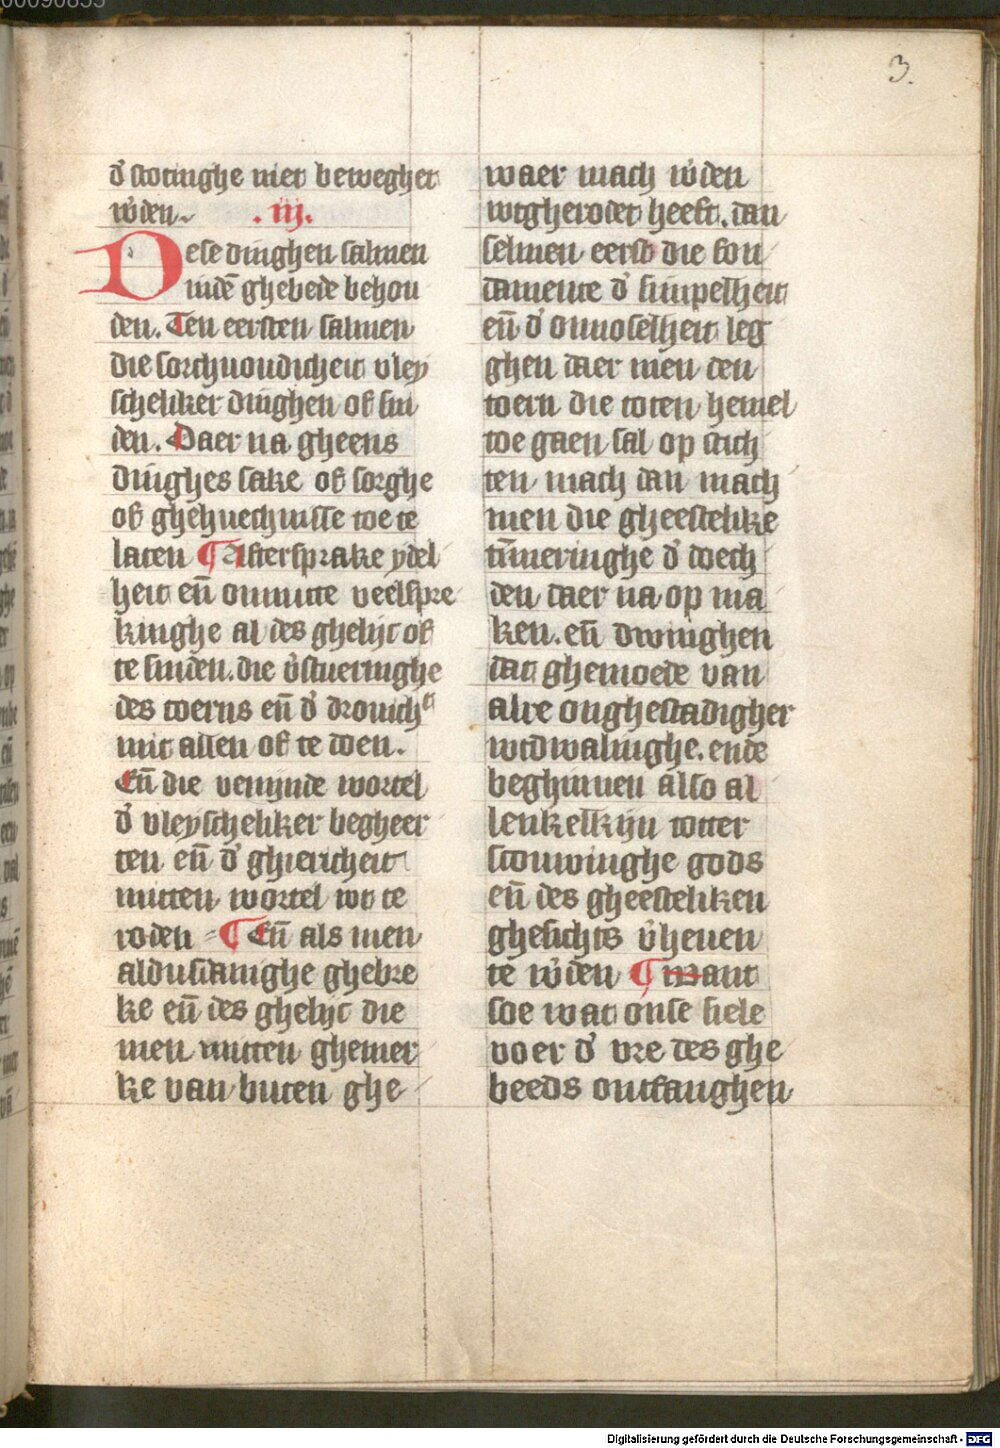 00090855
3.
d' stotinghe niet beweghet
w'den .iij.
Dese dinghen salmen
indē ghebede behou
den. Ten eersten salmen
die sorchuoudicheit vley
scheliker dinghen of sni
den. Daer na gheens
dinghes sake of sorghe
of ghehuechnisse toe te
laten ¶ Aftersprake ydel
heit eñ onnutte veelspre
kinghe al des ghelijc of
te sniden. die v'stueringhe
des toerns eñ d' drouich
mit allen of te doen.
Eñ die venijnde wortel
d' vleyscheliker begheer
ten eñ d' ghiericheit
mitten wortel wt te
roden ¶ Eñ als men
aldusdanighe ghebre
ke eñ des ghelijc die
men mitten ghemer
ke van buten ghe
waer mach w'den
wtgherodet heeft. dan
selmen eerst die fon
damente d' simpelheit
eñ d' onnoselheit leg
ghen daer men den
toern die toten hemel
toe gaen sal op stich
ten mach dan mach
men die gheestelike
tīmeringhe d' doech
den daer na op ma
ken. eñ dwinghen
dat ghemoede van
alre onghestadigher
wtdwalinghe. ende
beghinnen also al
lenkelkijn totter
scouwinghe gods
eñ des gheesteliken
ghesichts v'heuen
te w'den ¶ want
soe wat onse siele
voer d' vre des ghe
beeds ontfanghen
Digitalisierung gefördert durch die Deutsche Forschungsgemeinschaft - DFG